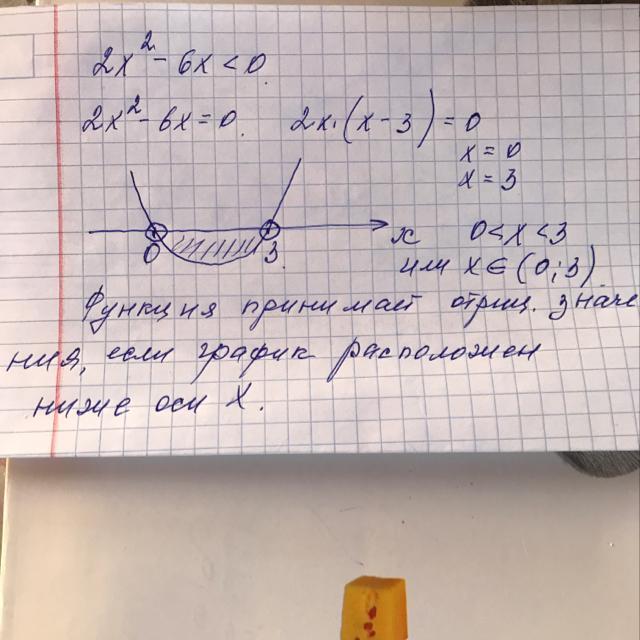 2x² - 6x < 0
2x² - 6x = 0. 2x·(x - 3) = 0
x = 0
x = 3
0 3 x 0 < x < 3
или x ∈ (0; 3)
Функция принимает отриц. значе
ния, если график расположен
ниже оси X.